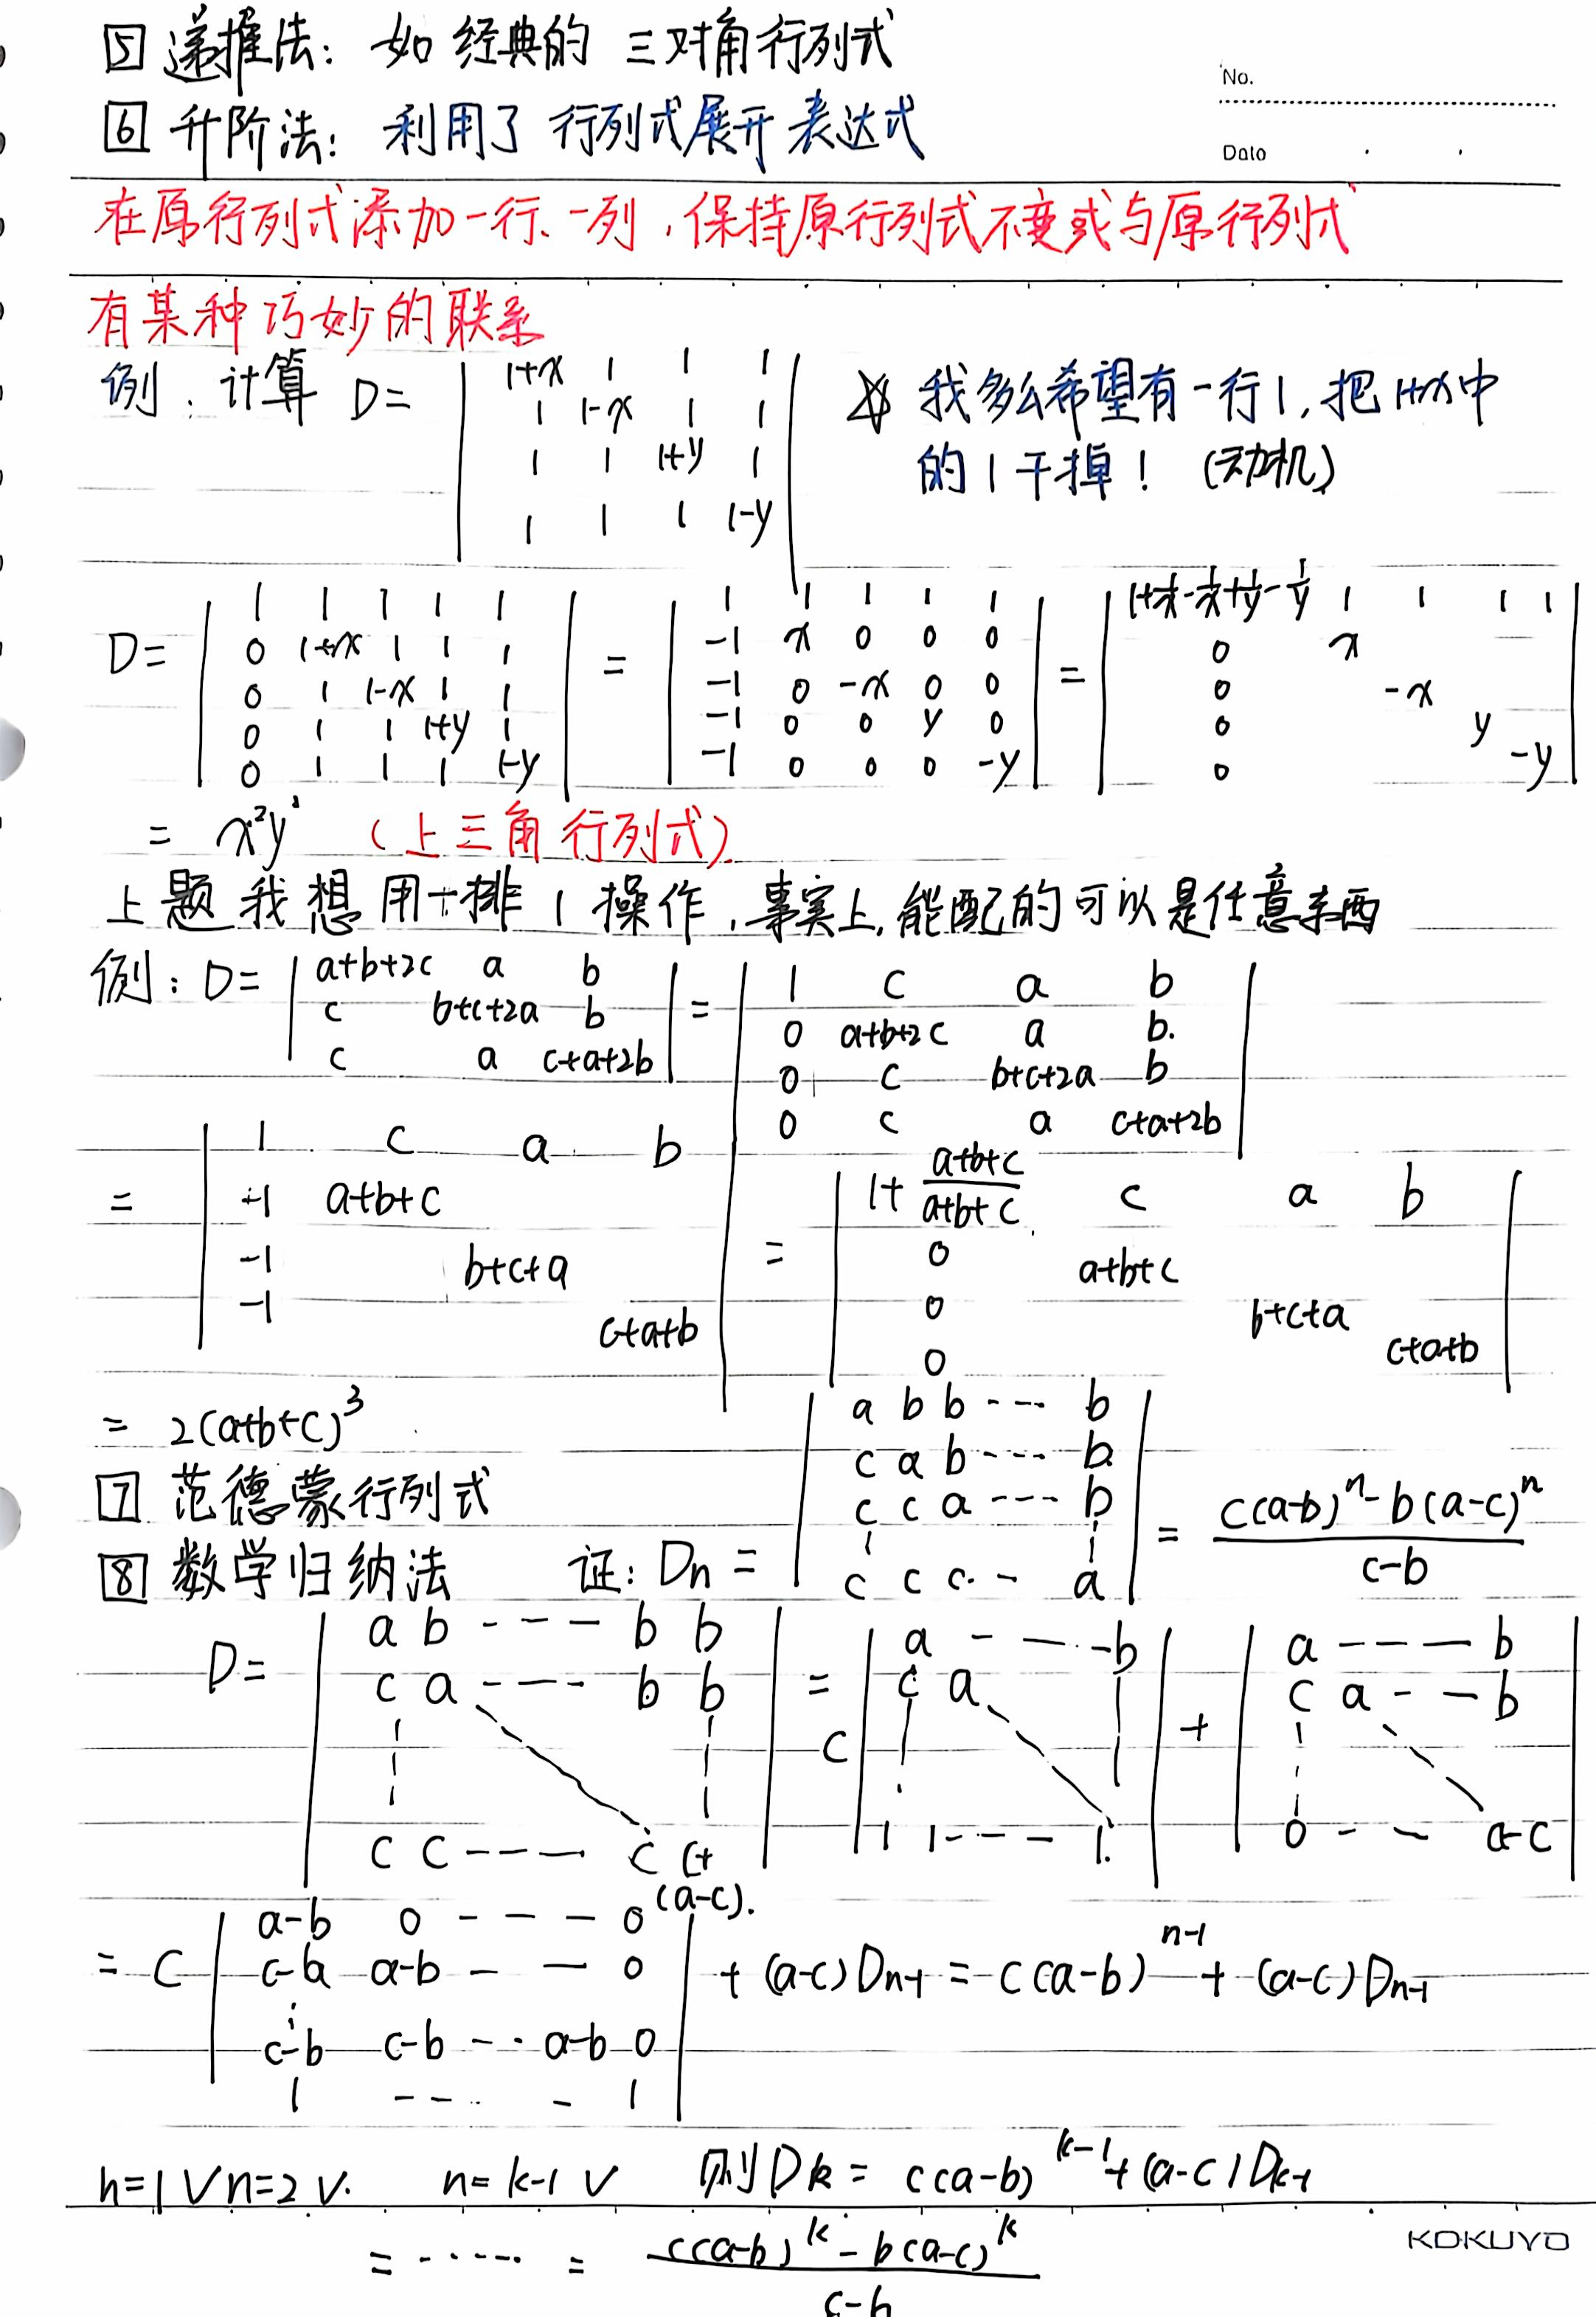 5 递推法: 如 经典的 三对角行列式
No.
6 升阶法: 利用了 行列式展开 表达式
Date
在原行列式添加一行、一列,保持原行列式不变或与原行列式
有某种巧妙的联系
例. 计算 D= | 1+x 1 1 1 |
| 1 1-x 1 1 |
| 1 1 1+y 1 |
| 1 1 1 1-y |
☆ 我多么希望有一行1,把1+x中
的1干掉! (动机)
D= | 1 1 1 1 1 |
| 0 1+x 1 1 1 |
| 0 1 1-x 1 1 |
| 0 1 1 1+y 1 |
| 0 1 1 1 1-y |
= | 1 1 1 1 1 |
| -1 x 0 0 0 |
| -1 0 -x 0 0 |
| -1 0 0 y 0 |
| -1 0 0 0 -y |
= | 1+1/x-1/x+1/y-1/y 1 1 1 1 |
| 0 x |
| 0 -x |
| 0 y |
| 0 -y |
= x²y² (上三角行列式)
上题我想用一排1操作,事实上,能配的可以是任意东西
例: D= | a+b+2c a b |
| c b+c+2a b |
| c a c+a+2b |
= | 1 c a b |
| 0 a+b+2c a b |
| 0 c b+c+2a b |
| 0 c a c+a+2b |
= | 1 c a b |
| -1 a+b+c |
| -1 b+c+a |
| -1 c+a+b |
= | 1+(a+b+c)/(a+b+c) c a b |
| 0 a+b+c |
| 0 b+c+a |
| 0 c+a+b |
= 2(a+b+c)³
7 范德蒙行列式
8 数学归纳法 证: Dn = | a b b --- b |
| c a b --- b |
| c c a --- b |
| c c c - - a |
= (c(a-b)ⁿ - b(a-c)ⁿ)/(c-b)
D= | a b --- b b |
| c a --- b b |
| c c --- c c+(a-c). |
= c | a - - - b |
| c a |
| 1 1 --- 1. |
+ | a --- b |
| c a -- b |
| 0 - - a-c |
= c | a-b 0 --- 0 |
| c-b a-b - - 0 |
| c-b c-b -- a-b 0 |
| 1 --- 1 |
+ (a-c)Dn-1 = c(a-b)ⁿ⁻¹ + (a-c)Dn-1
n=1 √ n=2 √. n=k-1 √ 则Dk = c(a-b)ᵏ⁻¹+(a-c)Dk-1
= ····· = (c(a-b)ᵏ - b(a-c)ᵏ)/(c-b)
KOKUYO